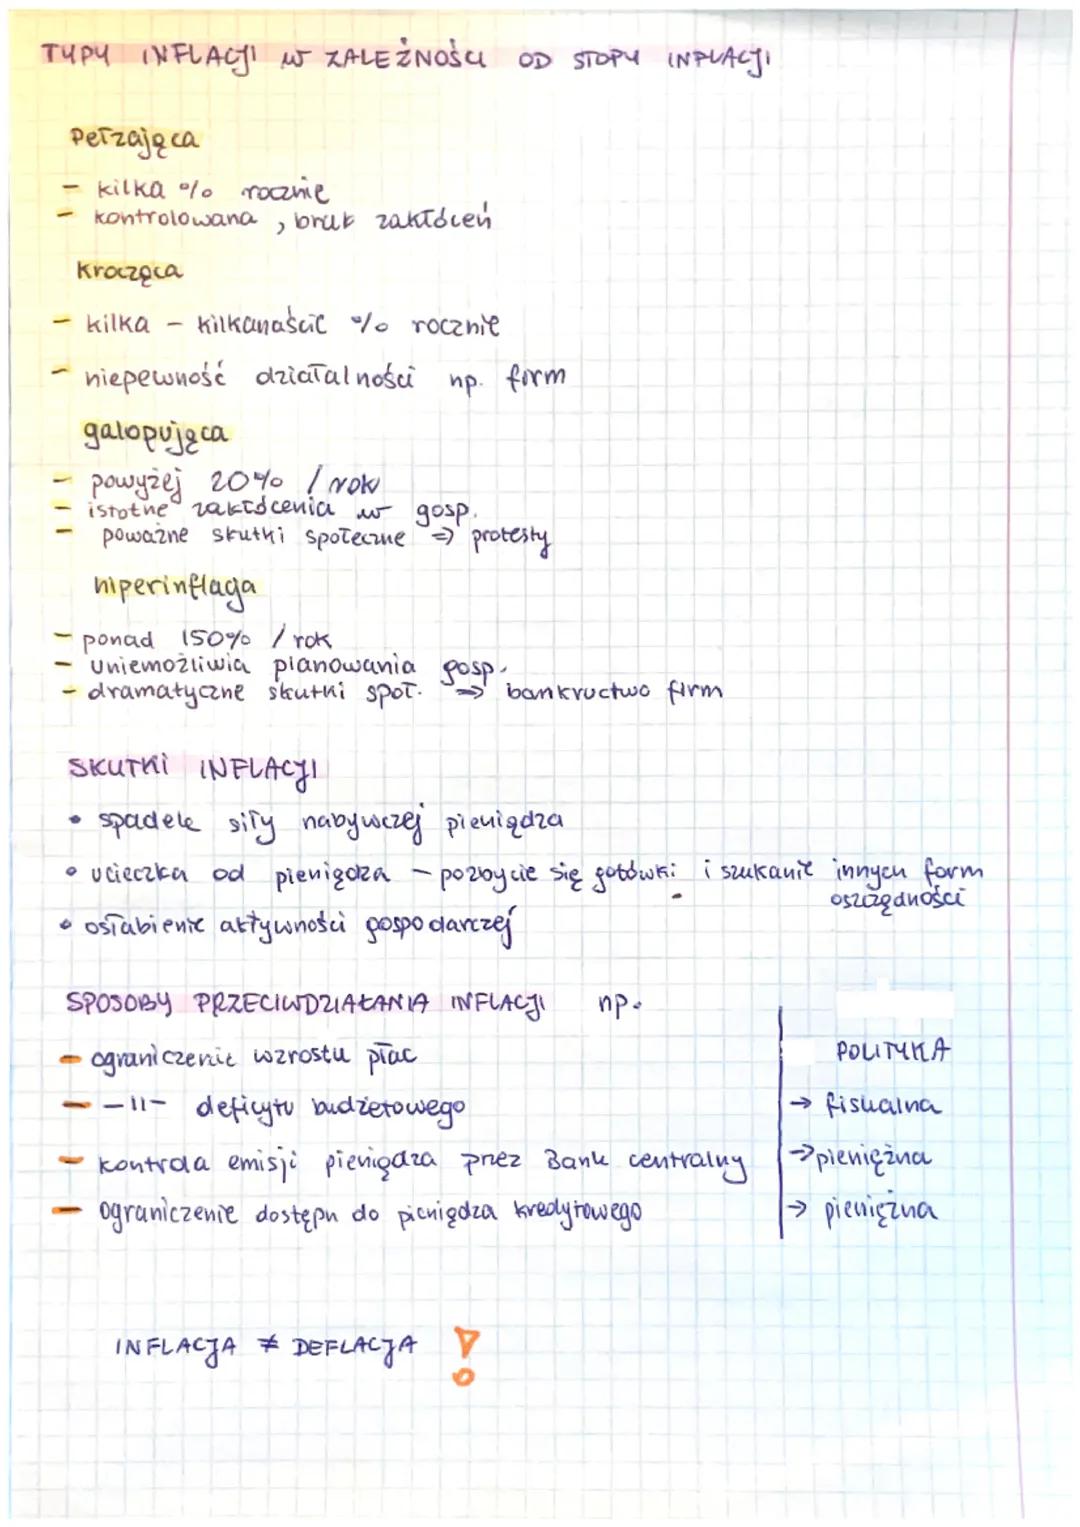 TYPY INFLACJI W ZALEŻNOŚCI OD STOPY INFLACJI
Pełzająca
- kilka % rocznie
- kontrolowana, brak zakłóceń
Krocząca
- kilka - kilkanaście % rocznie
- niepewność działalności np. firm
galopująca
- powyżej 20% / rok
- istotne zakłócenia w gosp.
- poważne skutki społeczne => protesty
hiperinflacja
- ponad 150% / rok
- uniemożliwia planowania gosp.
- dramatyczne skutki społ. => bankructwo firm
SKUTKI INFLACJI
• spadek siły nabywczej pieniądza
• ucieczka od pieniądza - pozbycie się gotówki i szukanie innych form
oszczędności
• osłabienie aktywności gospodarczej
SPOSOBY PRZECIWDZIAŁANIA INFLACJI np.
POLITYKA
- ograniczenie wzrostu płac
- -||- deficytu budżetowego → fiskalna
- kontrola emisji pieniądza przez Bank centralny → pieniężna
- ograniczenie dostępu do pieniądza kredytowego → pieniężna
INFLACJA ≠ DEFLACJA !